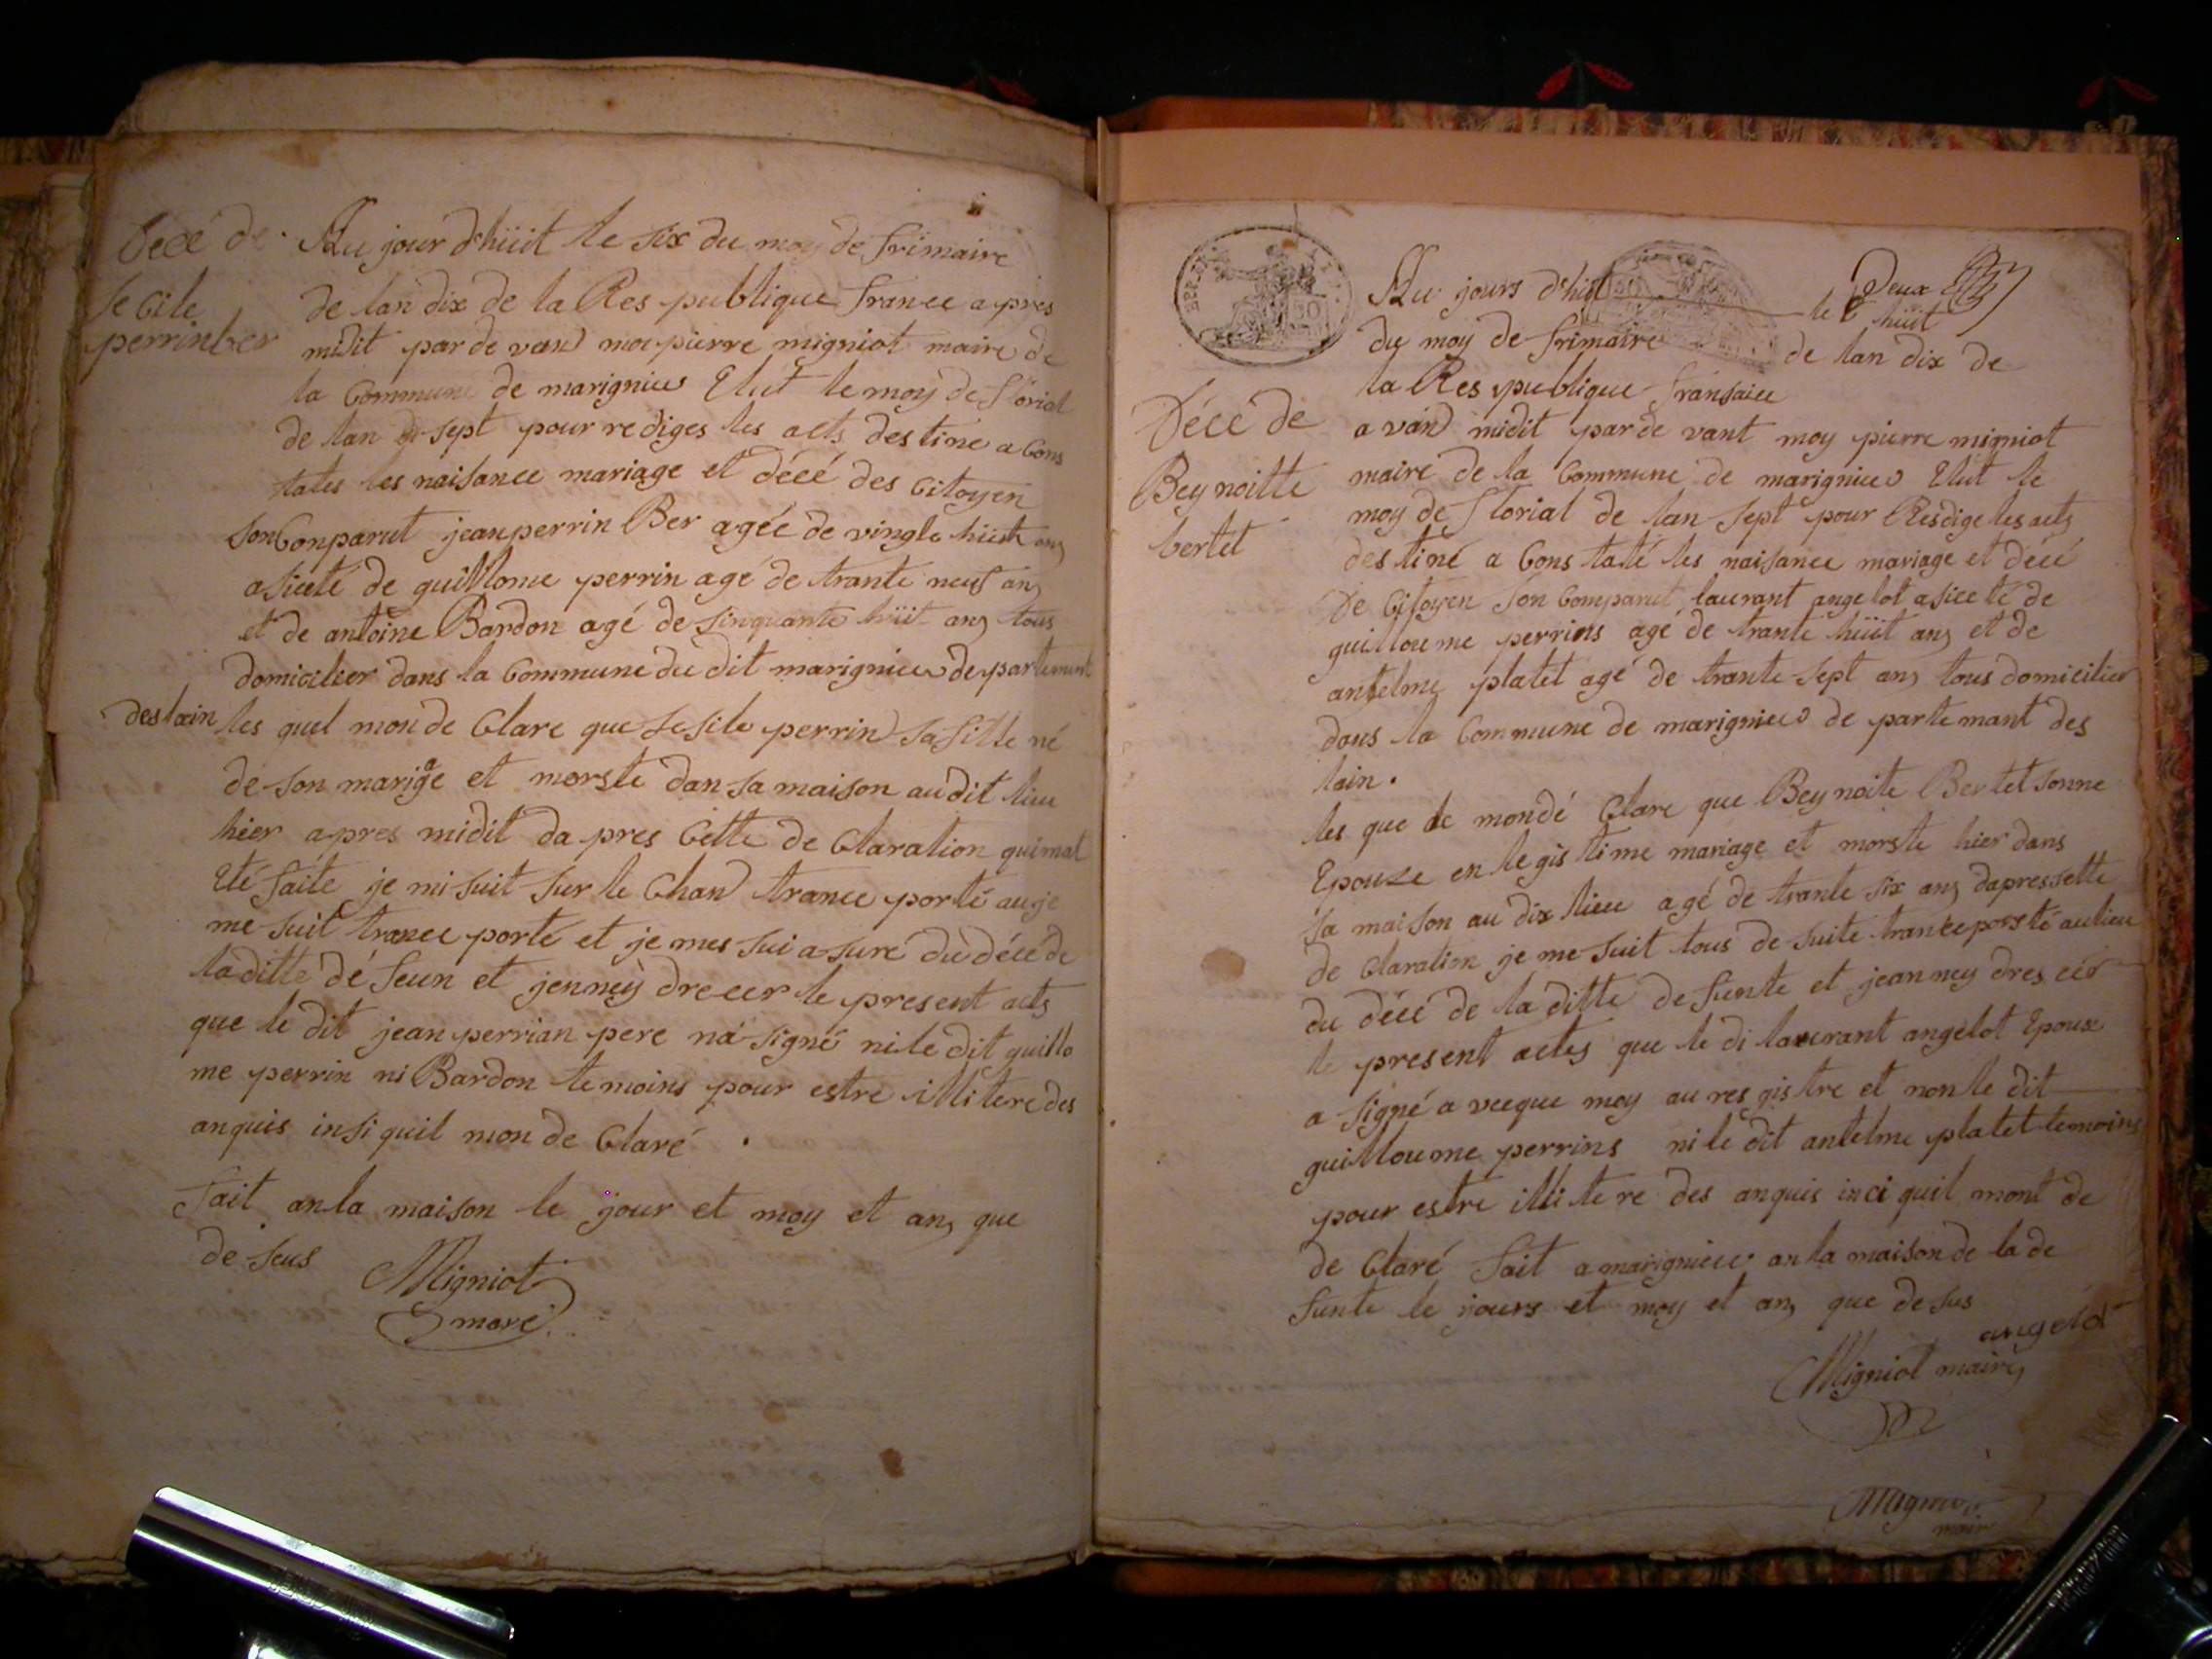 Décé de
Se Cile
perrin ber
Au jour d'hüit le six du moy de frimaire
de lan dix de la Res publique france apres
midit par de vand moi pierre migniot maire de
la Commune de marignieu Elut le moy de florial
de lan sept pour rediges les acts destine a Cons
tates les naisance mariage et décé des Citoyen
son Conparut jean perrin Ber agée de vingte hüit ans
asicté de guillome perrin agé de trante neuf ans
et de antoine Bardon agé de sinquante hüit ans tous
domicilier dans la Commune du dit marignieu de partement
des lain les quel mon de Clare que se sile perrin sa fille né
de son mariage et morste dan sa maison au dit lieu
hier apres midit da pres Cette de Claration qui mat
Eté faite je mi suit sur le Chan trance porté au je
me suit trance porté et je mes sui a suré du décé de
la ditte dé feun et jenney drecer le present acts
que le dit jean perrian pere na signé ni le dit guillo
me perrin ni Bardon temoins pour estre illitere des
anquis insi quil mon de Claré .
fait an la maison le jour et moy et ans que
de sus
Migniot
mare
Deux
Au jours d'huit le hüit
du moy de frimaire de lan dix de
la Res publique fransaice
Décé de
Beynoitte
bertet
a vand midit par de vant moy pierre migniot
maire de la Commune de marignieu Elut le
moy de florial de lan sept pour Resdige les acts
des tiné a Cons taté les naisance mariage et décé
De Citoyen son Comparut laurant angelot asicté de
guilloume perrins agé de trante hüit ans et de
antelme platet agé de trante sept ans tous domicilier
dans la Commune de marignieu de partemant des
lain .
les que le mondé Clare que Beynoite Bertet sonne
Epouze en le gis time mariage et morste hier dans
sa maison au dix lieu agé de trante six ans dapressette
de Claration je me suit tous de suite tranceporsté au lieu
du décé de la ditte de funte et jeanney dres cér
le present actes que le di laurant angelot Epoux
a signé a vecque moy au res gistre et non le dit
guilloume perrins ni le dit antelme platet temoins
pour estre illi te re des anquis inci quil mont de
de Claré fait a marignieu an la maison de la de
funte le jours et moy et ans que de sus
angelot
Migniot maire
Migniot
maire